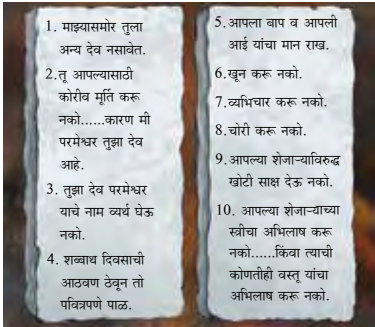 1. माझ्यासमोर तुला
अन्य देव नसावेत.
2.तू आपल्यासाठी
कोरीव मूर्ति करू
नको......कारण मी
परमेश्वर तुझा देव
आहे.
3. तुझा देव परमेश्वर
याचे नाम व्यर्थ घेऊ
नको.
4. शब्बाथ दिवसाची
आठवण ठेवून तो
पवित्रपणे पाळ.
5.आपला बाप व आपली
आई यांचा मान राख.
6.खून करू नको.
7.व्यभिचार करू नको.
8.चोरी करू नको.
9.आपल्या शेजाऱ्याविरुद्ध
खोटी साक्ष देऊ नको.
10. आपल्या शेजाऱ्याच्या
स्त्रीचा अभिलाष करू
नको......किंवा त्याची
कोणतीही वस्तू यांचा
अभिलाष करू नको.